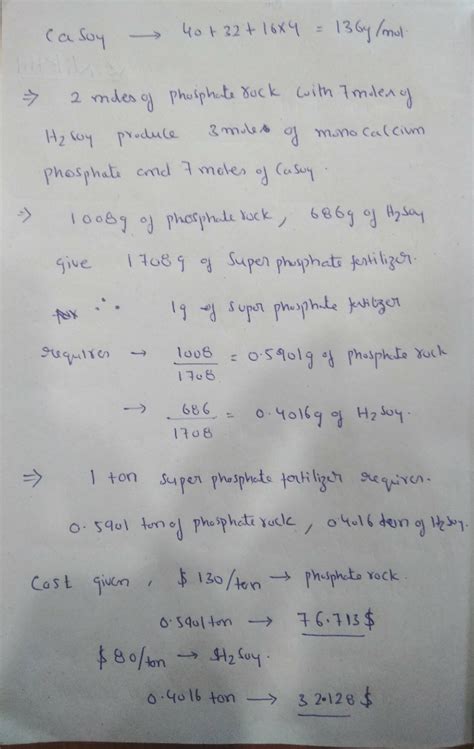 CaSO4 → 40+32+16×4 = 136g/mol
⇒ 2 moles of phosphate rock with 7 moles of
H2SO4 produce 3 moles of monocalcium
phosphate and 7 moles of CaSO4.
⇒ 1008g of phosphate rock, 686g of H2SO4
give 1708g of Super phosphate fertilizer.
∴ 1g of super phosphate fertilizer
requires → 1008/1708 = 0.5901g of phosphate rock
→ 686/1708 = 0.4016g of H2SO4.
⇒ 1 ton super phosphate fertilizer requires.
0.5901 ton of phosphate rock, 0.4016 ton of H2SO4.
Cost given, $130/ton → phosphate rock.
0.5901 ton → 76.713$
$80/ton → H2SO4.
0.4016 ton → 32.128$